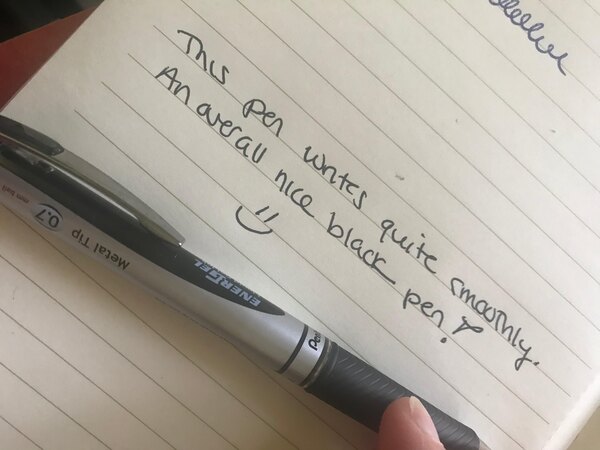 This pen writes quite smoothly.
An overall nice black pen!
ENERGEL
Metal Tip
0.7
mm ball